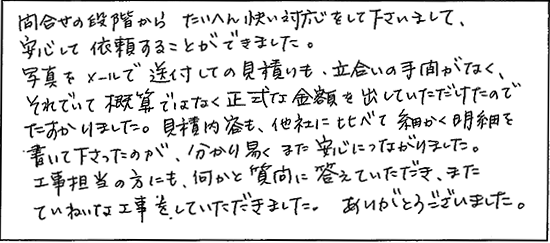 問合せの段階から たいへん快い対応をして下さいまして、
安心して依頼することができました。
写真をメールで送付しての見積りも、立合いの手間がなく、
それでいて概算ではなく正式な金額を出していただけたので
たすかりました。見積内容も、他社に比べて細かく明細を
書いて下さったのが、分かり易くまた安心につながりました。
工事担当の方にも、何かと質問に答えていただき、また
ていねいな工事をしていただきました。 ありがとうございました。